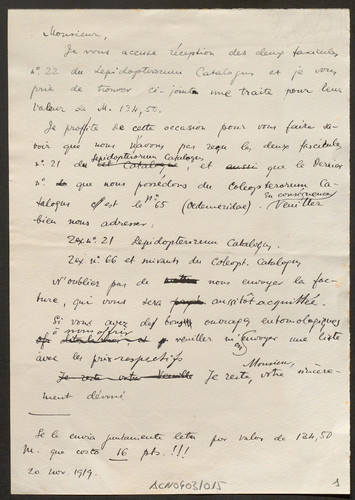 Monsieur,
Je vous accuse réception des deux fascicules
nº. 22 du Lepidopterorum Catalogus et je vous
prie de trouver ci-jointe une traite pour leur
valeur de M. 134,50.
Je profite de cette occasion pour vous faire sa-
voir que nous n'avons pas reçu les deux fascicules
nº. 21 du Lepidopterorum Catalogus, et aussi que le dernier
nº. que nous possédons du Coleopterorum Ca-
talogus c'est le nº 65 (Oedemeridae). En conséquence Veuillez
bien nous adresser,
2 ex. nº. 21 Lepidopterorum Catalogus.
2 ex. nº 66 et suivants du Coleopt. Catalogus
N'oubliez pas de nous envoyer la fac-
ture, qui vous sera aussitot acquittée.
Si vous avez des ouvrages entomologiques
à nous offrir veuillez m'envoyer une liste
avec les prix respectifs
Je reste votre Je reste, Monsieur, votre sincère-
ment dévoué
Se le envia juntamente letra por valor de 134,50
M. que costó 16 pts. !!!
20 nov. 1919.
ACN0403/015
1